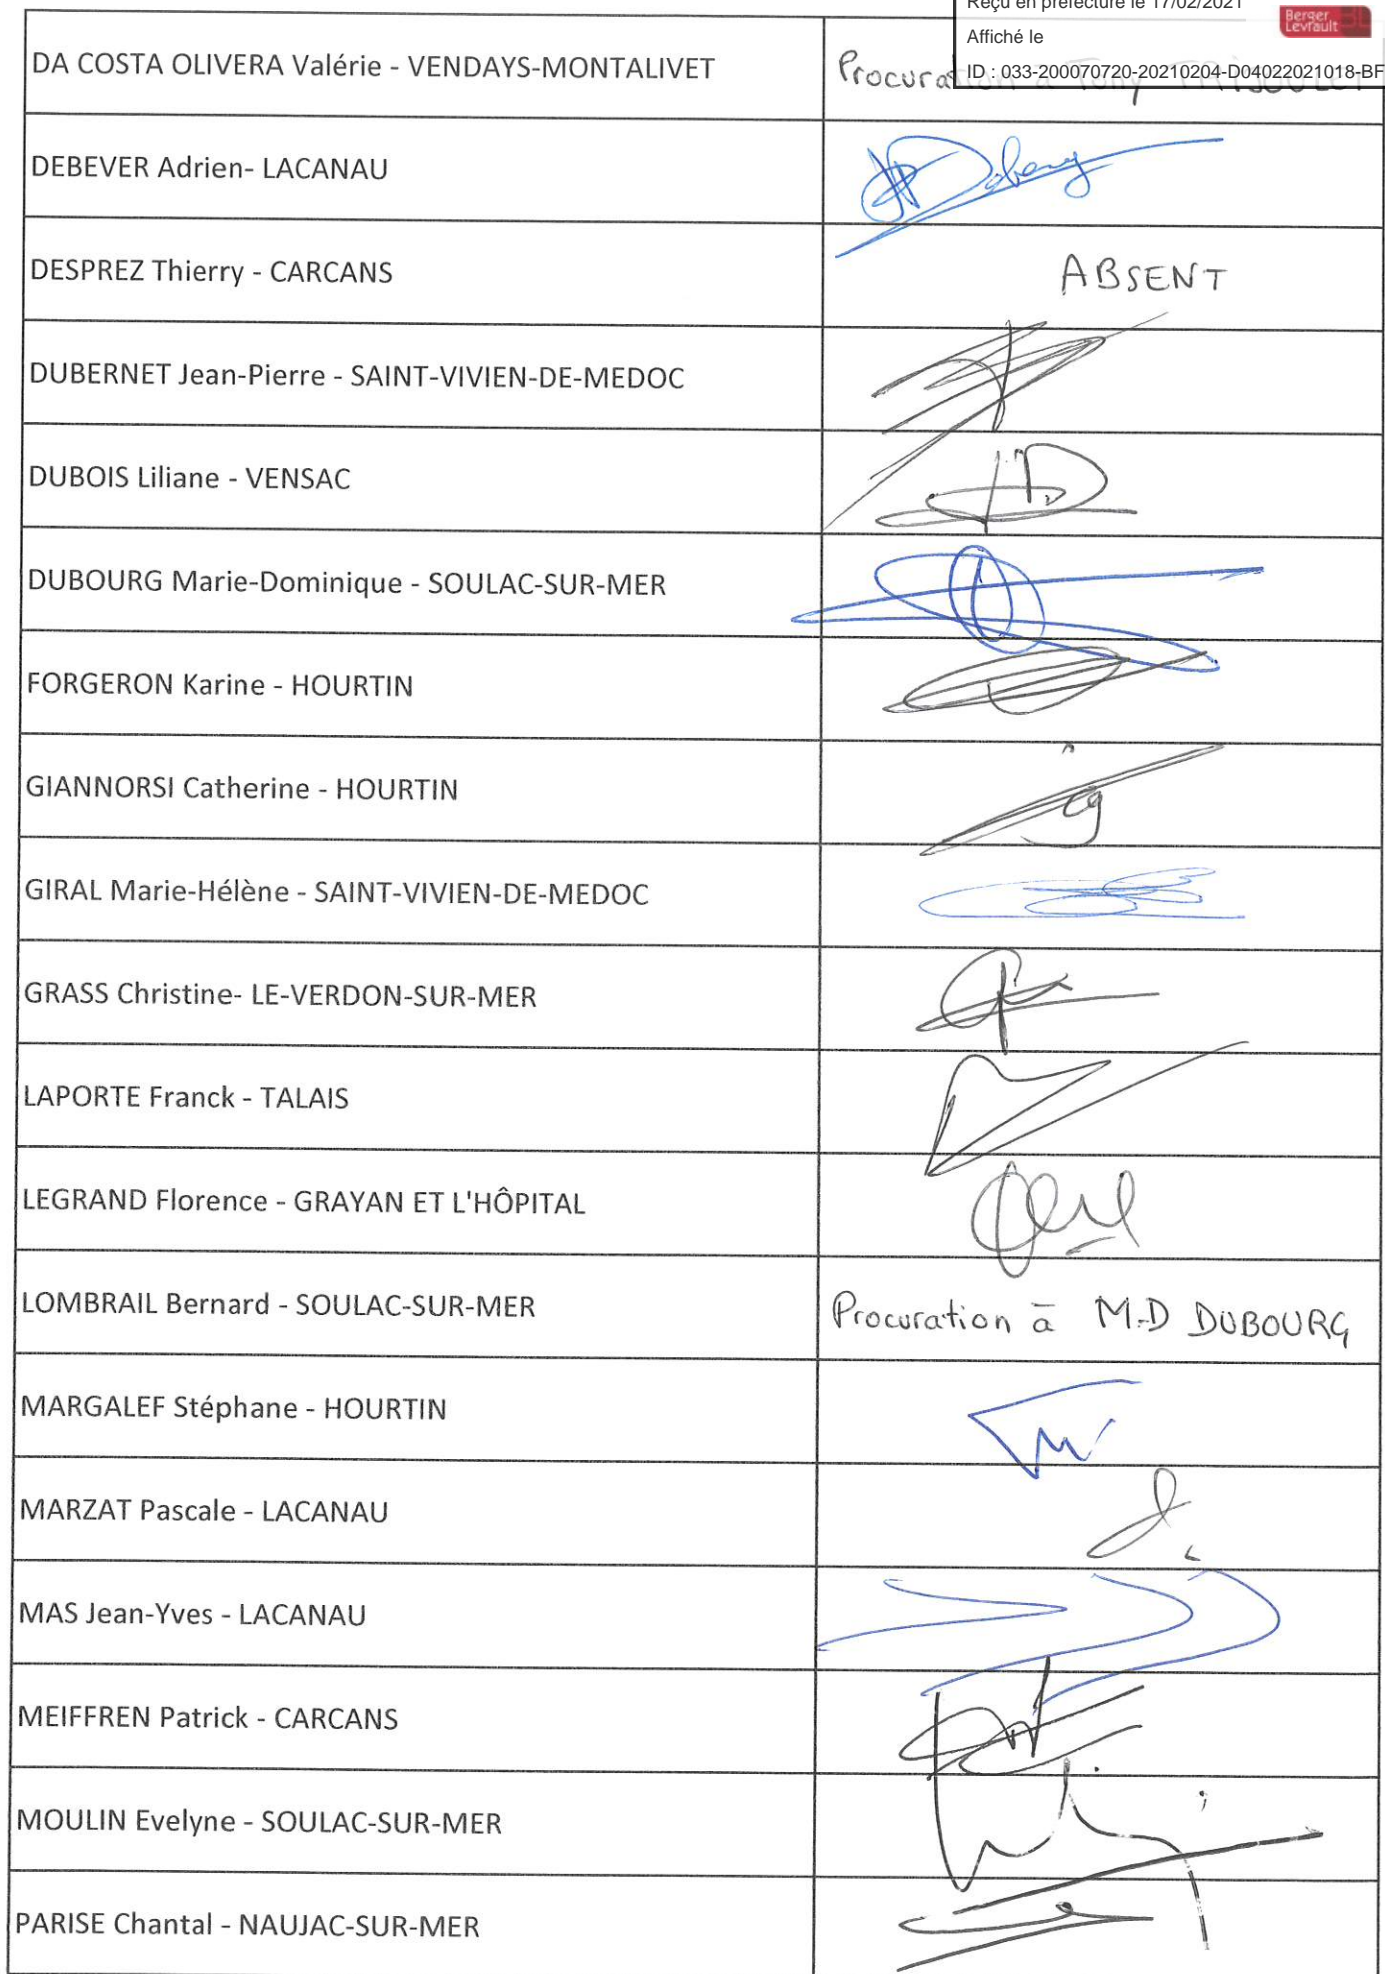 Reçu en préfecture le 17/02/2021
Affiché le
Berger Levrault
ID : 033-200070720-20210204-D04022021018-BF
DA COSTA OLIVERA Valérie - VENDAYS-MONTALIVET
Procuration à Tony TRIJOULET
DEBEVER Adrien- LACANAU
DESPREZ Thierry - CARCANS
ABSENT
DUBERNET Jean-Pierre - SAINT-VIVIEN-DE-MEDOC
DUBOIS Liliane - VENSAC
DUBOURG Marie-Dominique - SOULAC-SUR-MER
FORGERON Karine - HOURTIN
GIANNORSI Catherine - HOURTIN
GIRAL Marie-Hélène - SAINT-VIVIEN-DE-MEDOC
GRASS Christine- LE-VERDON-SUR-MER
LAPORTE Franck - TALAIS
LEGRAND Florence - GRAYAN ET L'HÔPITAL
LOMBRAIL Bernard - SOULAC-SUR-MER
Procuration à M.D DUBOURG
MARGALEF Stéphane - HOURTIN
MARZAT Pascale - LACANAU
MAS Jean-Yves - LACANAU
MEIFFREN Patrick - CARCANS
MOULIN Evelyne - SOULAC-SUR-MER
PARISE Chantal - NAUJAC-SUR-MER